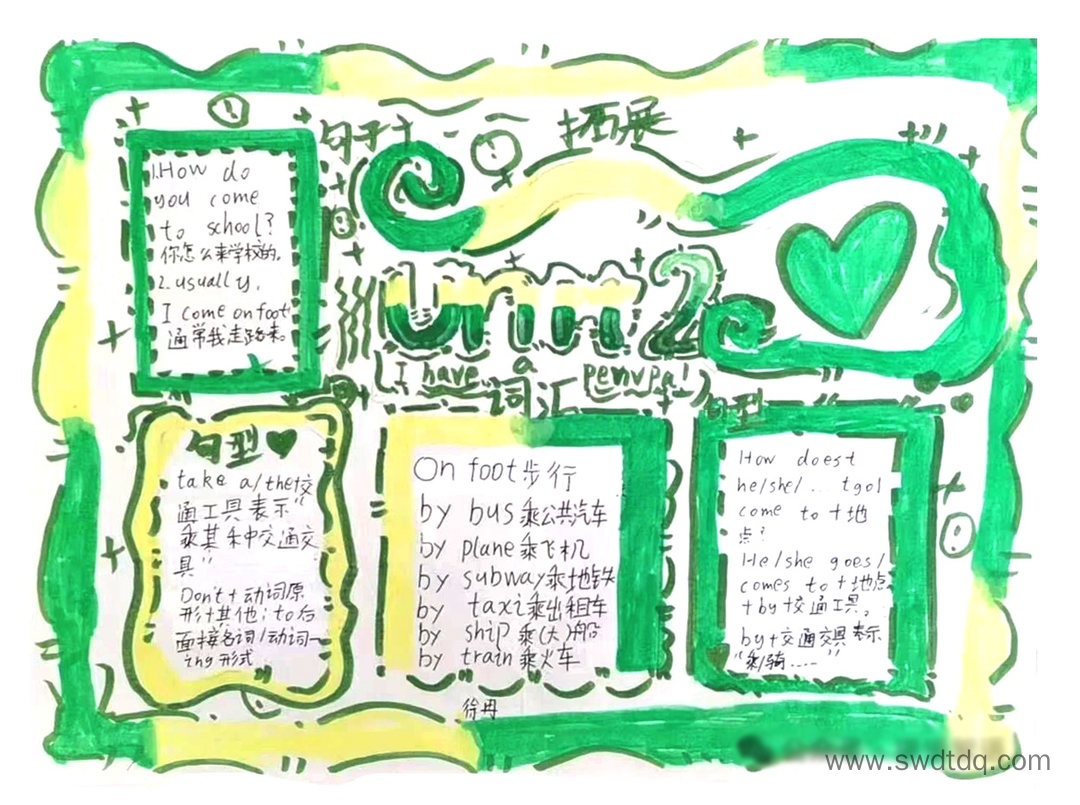 句子+
拓展
1.How do
you come
to school?
你怎么来学校的。
2.usually,
I come on foot
通常我走路来。
Unit 2
(I have a penvpa!)
词汇
句型
take a/the+交
通工具表示“
乘某种交通交
具”
Don't+动词原
形+其他;to后
面接名词/动词一
ing形式
On foot步行
by bus乘公共汽车
by plane乘飞机
by subway乘地铁
by taxi乘出租车
by ship乘(大)船
by train乘火车
句型
How doest
he/she/...tgol
come to +地
点?
He/she goes/
comes to +地点
+by+交通工具。
by+交通交具表示
“乘/骑……”
徐丹
www.swdtdq.com